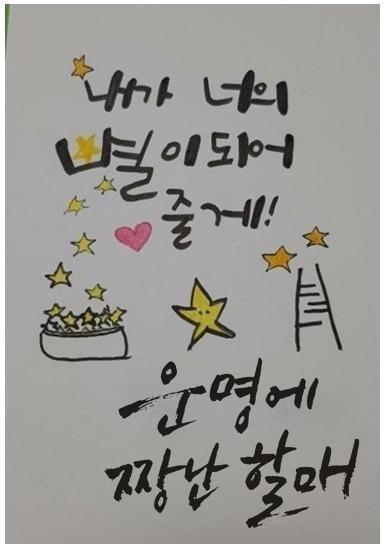 내가 너의
별이되어
줄게!
운명에
짱난 할매